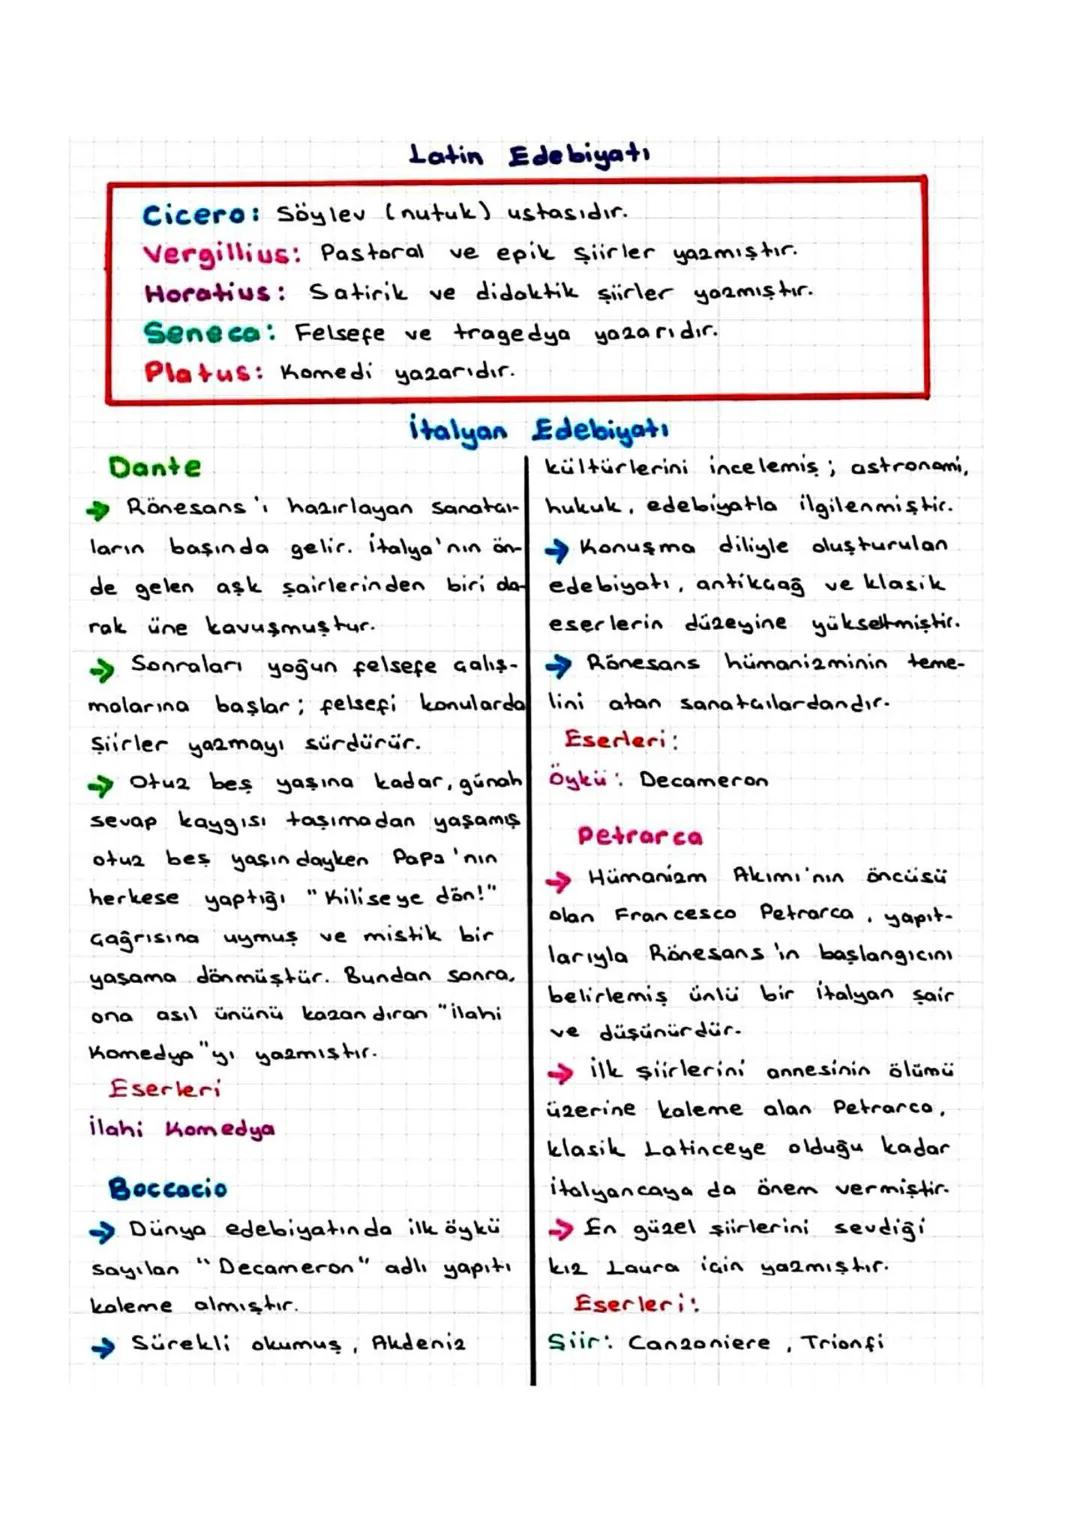 Latin Edebiyatı
Cicero: Söylev (nutuk) ustasıdır.
Vergillius: Pastoral ve epik şiirler yazmıştır.
Horatius: Satirik ve didaktik şiirler yazmıştır.
Seneca: Felsefe ve tragedya yazarıdır.
Platus: Komedi yazarıdır.
İtalyan Edebiyatı
Dante
→ Rönesans'ı hazırlayan sanatçı-
ların başında gelir. İtalya'nın ön-
de gelen aşk şairlerinden biri ola-
rak üne kavuşmuştur.
→ Sonraları yoğun felsefe çalış-
malarına başlar; felsefi konularda
şiirler yazmayı sürdürür.
→ Otuz beş yaşına kadar, günah
sevap kaygısı taşımadan yaşamış
otuz beş yaşındayken Papa'nın
herkese yaptığı "Kiliseye dön!"
çağrısına uymuş ve mistik bir
yaşama dönmüştür. Bundan sonra,
ona asıl ününü kazandıran "ilahi
Komedya"yı yazmıştır.
Eserleri
İlahi Komedya
Boccacio
→ Dünya edebiyatında ilk öykü
sayılan "Decameron" adlı yapıtı
kaleme almıştır.
→ Sürekli okumuş, Akdeniz
kültürlerini incelemiş; astronomi,
hukuk, edebiyatla ilgilenmiştir.
→ Konuşma diliyle oluşturulan
edebiyatı, antikçağ ve klasik
eserlerin düzeyine yükseltmiştir.
→ Rönesans hümanizminin teme-
lini atan sanatçılardandır.
Eserleri:
Öykü: Decameron
Petrarca
→ Hümanizm Akımı'nın öncüsü
olan Francesco Petrarca, yapıt-
larıyla Rönesans'in başlangıcını
belirlemiş ünlü bir İtalyan şair
ve düşünürdür.
→ İlk şiirlerini annesinin ölümü
üzerine kaleme alan Petrarca,
klasik Latinceye olduğu kadar
İtalyancaya da önem vermiştir.
→ En güzel şiirlerini sevdiği
kız Laura için yazmıştır.
Eserleri:
Şiir: Canzoniere, Trionfi